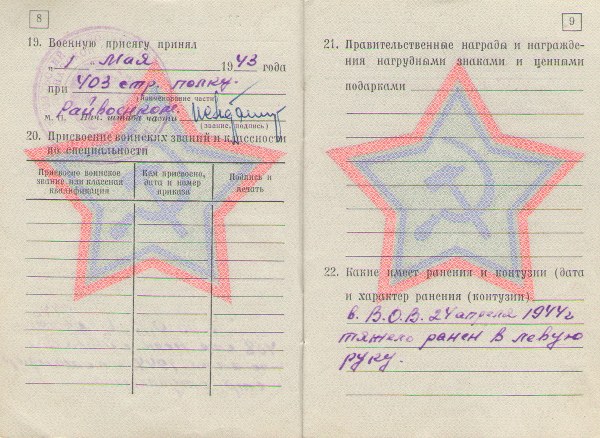 8
19. Военную присягу принял
„ 1 „ Мая 1943 года
при 403 стр. полку.
(наименование части)
Райвоенком.
м. п. Нач. штаба части
(звание, подпись)
20. Присвоение воинских званий и классности
по специальности
Присвоено воинское
звание или классная
квалификация
Кем присвоено,
дата и номер
приказа
Подпись и
печать
9
21. Правительственные награды и награжде-
ния нагрудными знаками и ценными
подарками
22. Какие имеет ранения и контузии (дата
и характер ранения (контузии)
в. В.О.В. 24 апреля 1944 г
тяжело ранен в левую
руку.